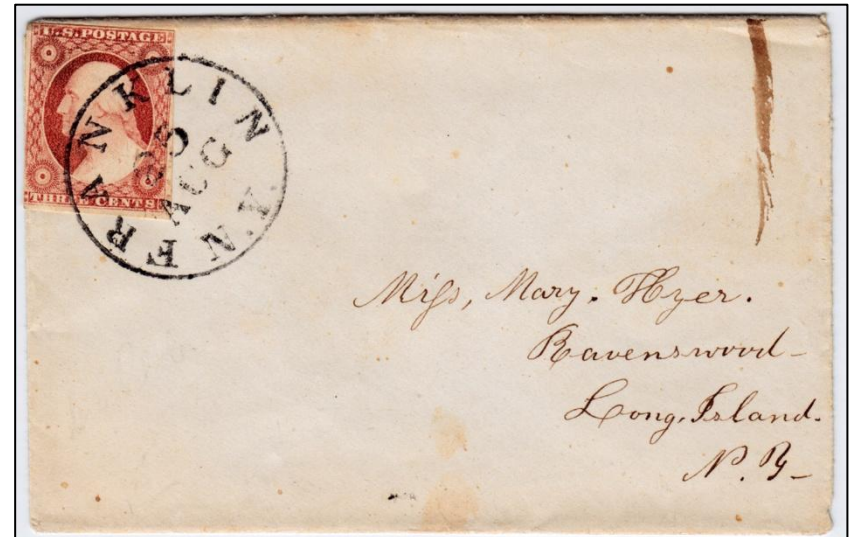 U.S. POSTAGE
THREE CENTS
FRANKLIN N.Y.
25
AUG
Miss, Mary. Hyer.
Ravenswood-
Long, Island.
N. Y-